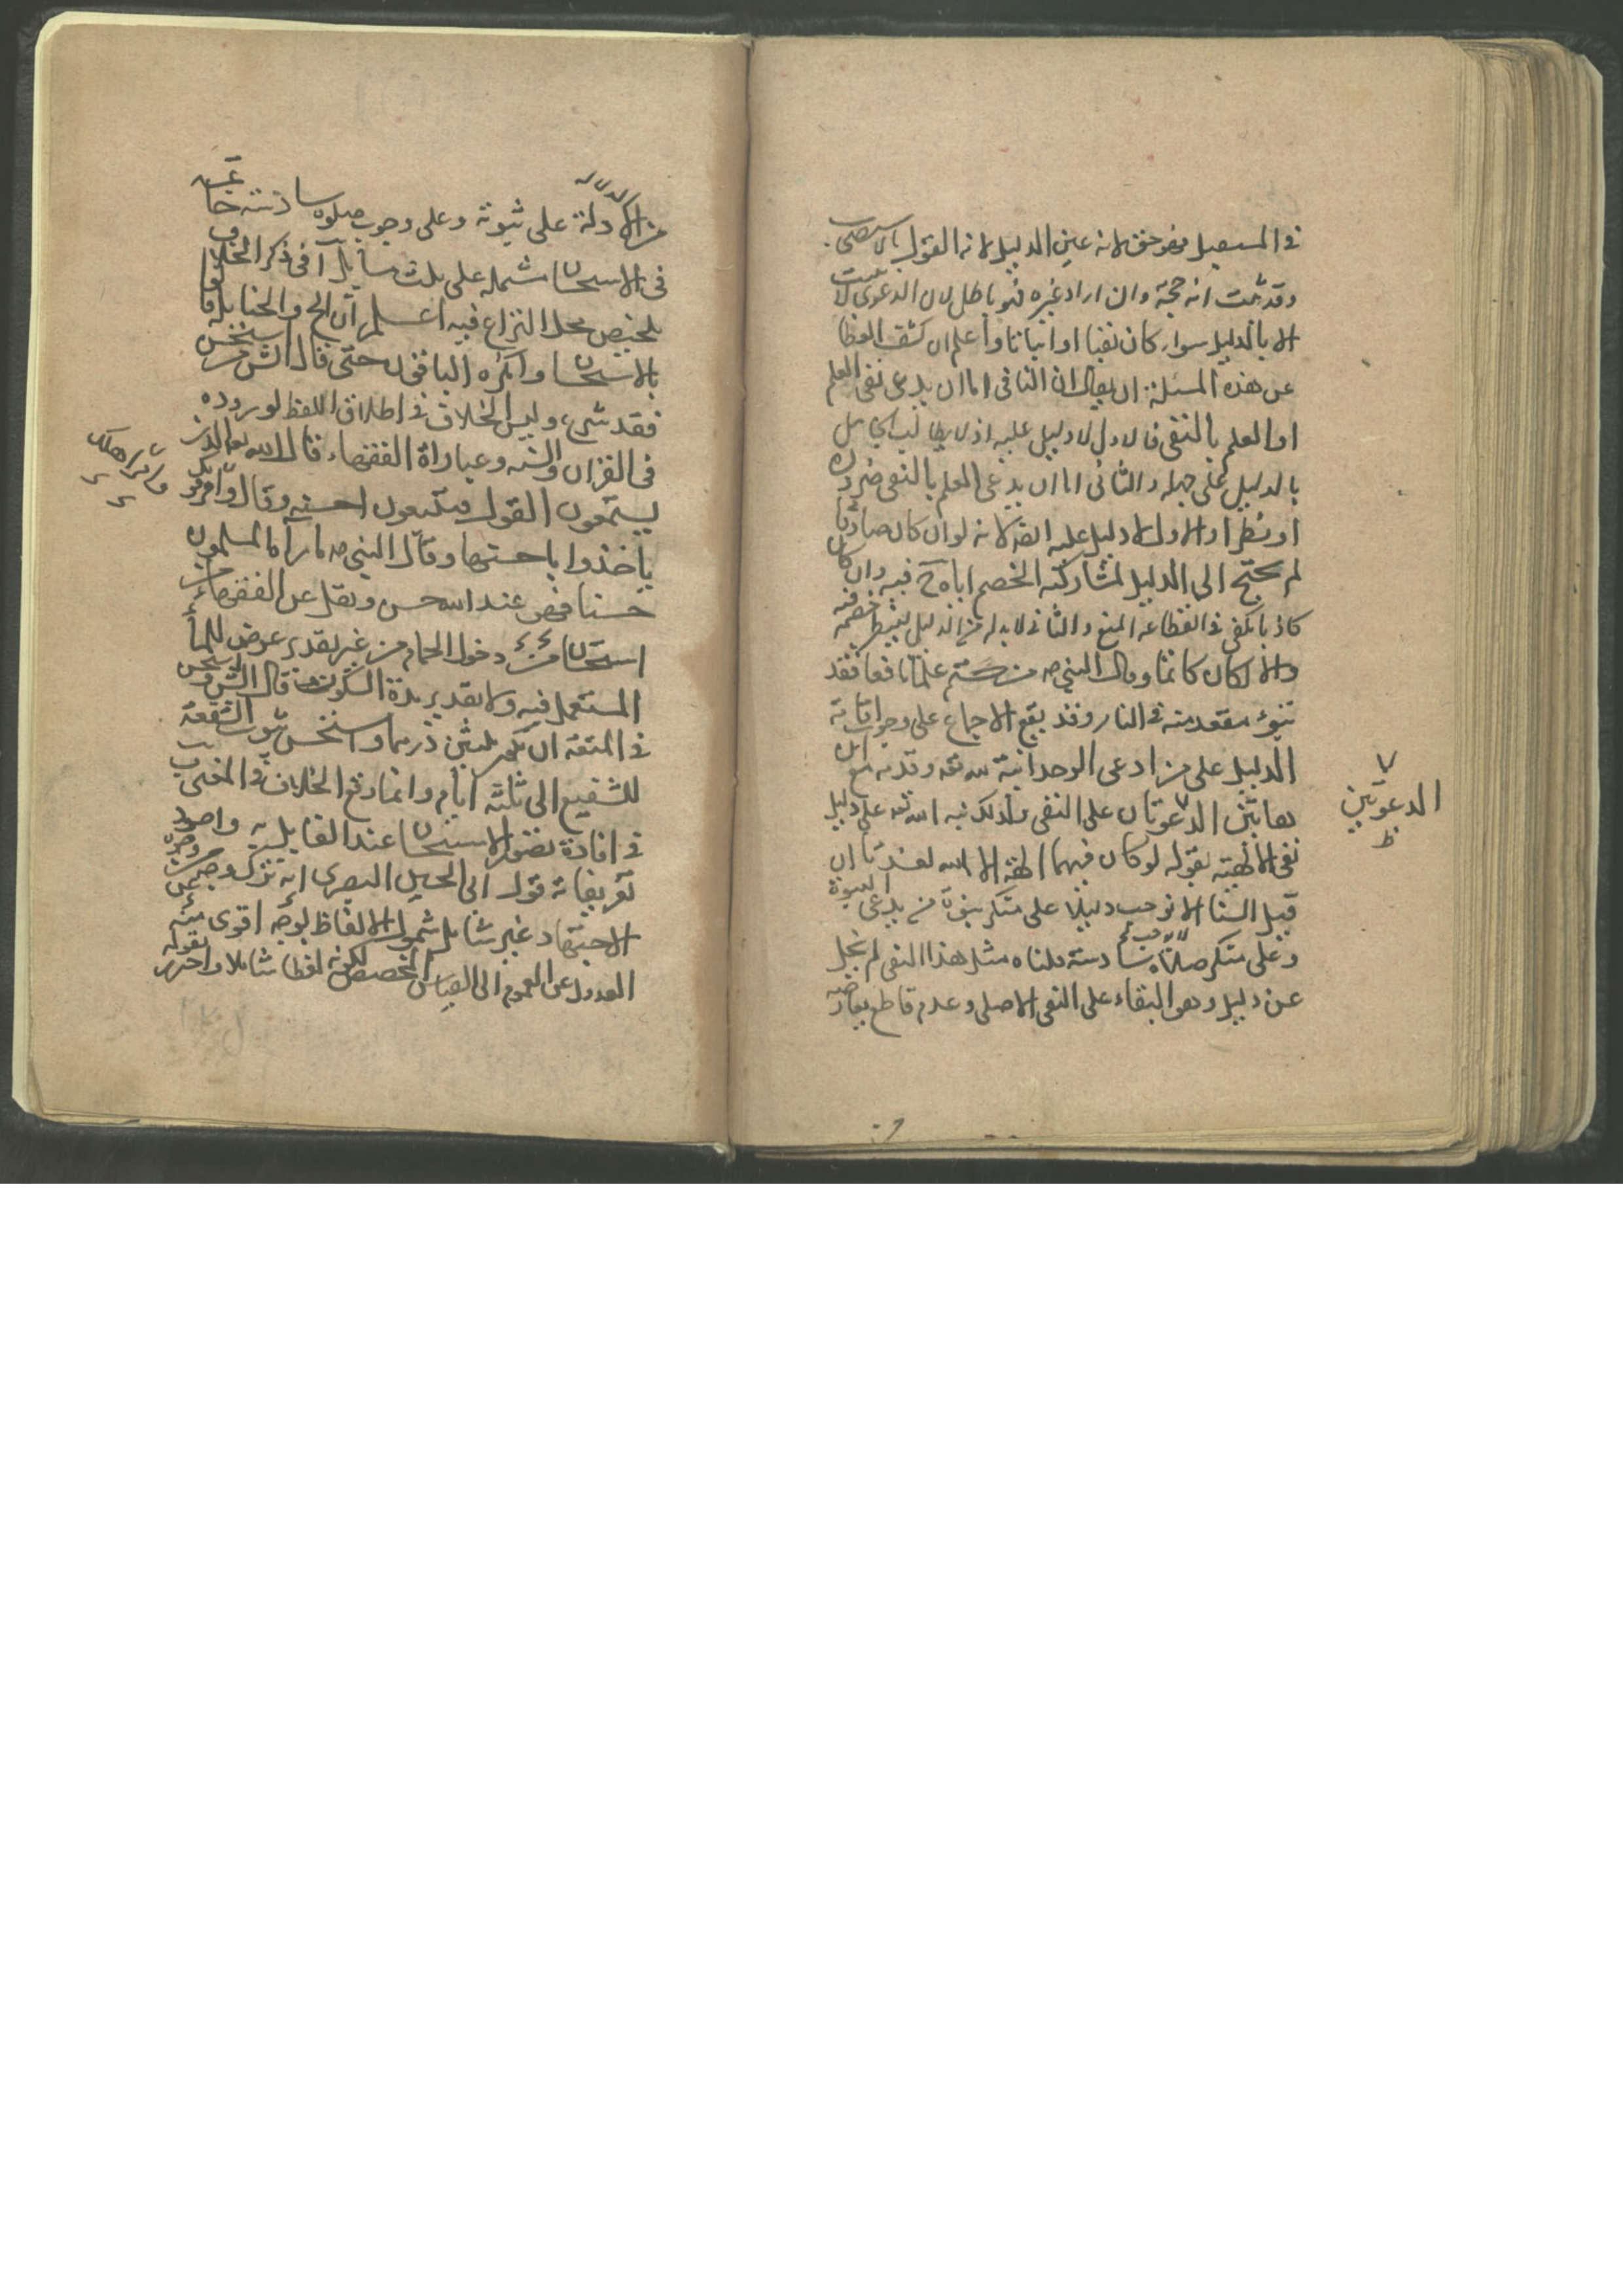 في المستقبل فهو حق لانه عين الدليل لانه القول بالاستصحاب
وقد ثبت انه حجة وان اراد غيره فهو باطل لان الدعوى لا تثبت
الا بالدليل سواء كان نفيا او اثباتا واعلم ان كشف الغطا
عن هذه المسئلة ان يقال ان النافي اما ان يدعى نفى العلم
او العلم بالنفى فالاول لا دليل عليه اذ لا يطالب الجاهل
بالدليل على جهله والثاني اما ان يدعى العلم بالنفى ضرورة
او نظرا والاول لا دليل عليه ايضا لانه لو ان كان صادقا
لم يحتج الى الدليل لمشاركة الخصم اياه ح فيه وان كان
كاذبا كفى في انقطاعه المنع والثاني لا بد له من الدليل لينظر خصمه فيه
والا لكان كاتما وقال النبي ص من كتم علما نافعا فقد
تبوء مقعده من النار وقد يقع الاجماع على وجوب اقامة
الدليل على من ادعى الوحدانية لله تعه وقدمه مع ان
هاتين الدعوتان على النفى ولذلك نبه الله تعه على دليل
نفى الالهية بقوله لو كان فيهما الهة الا الله لفسدتا ان
قيل السنا لا نوجب دليلا على منكر نبوة من يدعى النبوة
وعلى منكر وجوب صلاة سادسة قلناه مثل هذا النفى لم يخل
عن دليل وهو البقاء على النفى الاصلى وعدم قاطع يعارضه
الدعوتين
ظ
من الادلة الدالة على ثبوته وعلى وجوب صلوة سادسة خاتمة
في الاستحسان مشتمله على ثلث مسايل آ في ذكر الخلاف
تلخيص محل النزاع فيه اعلم ان الح والحنابلة قالوا
بالاستحسان وانكره الباقون حتى قال الش من استحسن
فقد شرع وليس الخلاف في اطلاق اللفظ لوروده
في القران والسنه وعباراة الفقهاء قال الله تعا الذين
يستمعون القول فيتبعون احسنه وقال وأمر قومك
ياخذوا باحسنها وقال النبي ص ما رآه المسلمون
حسنا فهو عند الله حسن ونقل عن الفقهاء
استحسان دخول الحمام من غير تقدير عوض للماء
المستعمل فيه ولا تقدير مدة السكون قال الش استحسن
في المتعة ان يكون ثلثين درهما واستحسن ثبوت الشفعة
للشفيع الى ثلثة ايام وانما وقع الخلاف في المعنى
في افادة تصور الاستحسان عند القايل به واجود
تعريفاته قول ابى الحسين البصرى انه ترك وجه من وجوه
الاجتهاد غير شامل شمول الالفاظ لوجه اقوى منه
العدول عن العموم الى القياس المخصص لكونه لفظا شاملا واحترز بقوله